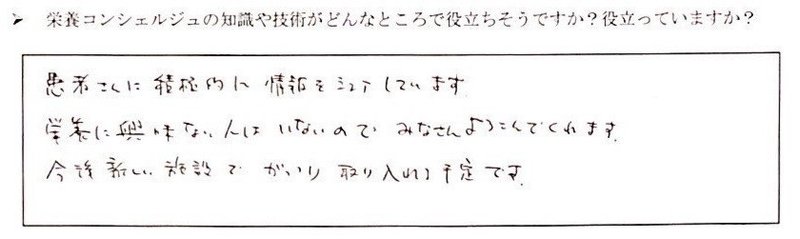 ➢ 栄養コンシェルジュの知識や技術がどんなところで役立ちそうですか？役立っていますか？
患者さんに積極的に情報をシェアしています
栄養に興味ない人はいないので みなさんよろこんでくれます.
今後新しい施設でがっつり取り入れる予定です.